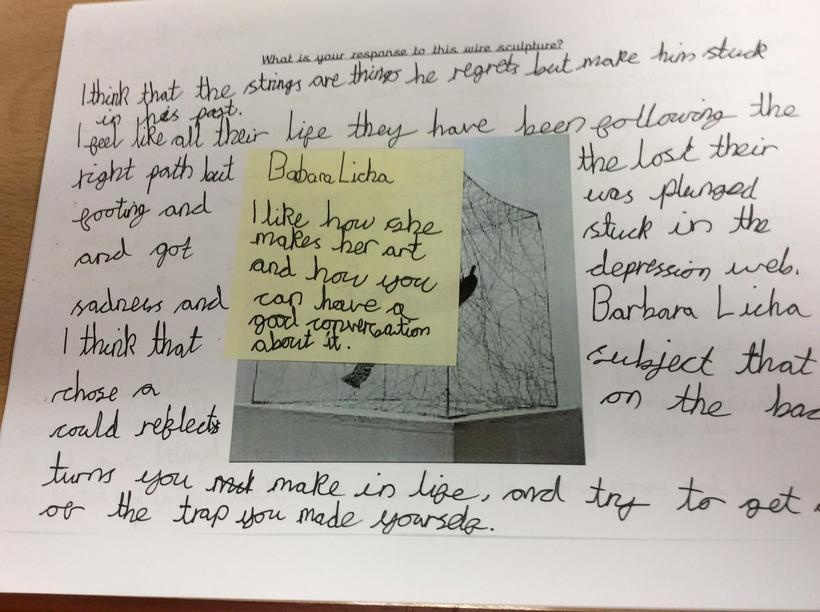 What is your response to this wire sculpture?
I think that the strings are things he regrets but make him stuck
in his past.
I feel like all their life they have been following the
right path but the lost their
footing and was plunged
and got stuck in the
sadness and depression web.
I think that Barbara Licha
chose a subject that
could reflects on the bac
turns you make in life, and try to get
of the trap you made yourself.
Babara Licha
I like how she
makes her art
and how you
can have a
good conversation
about it.